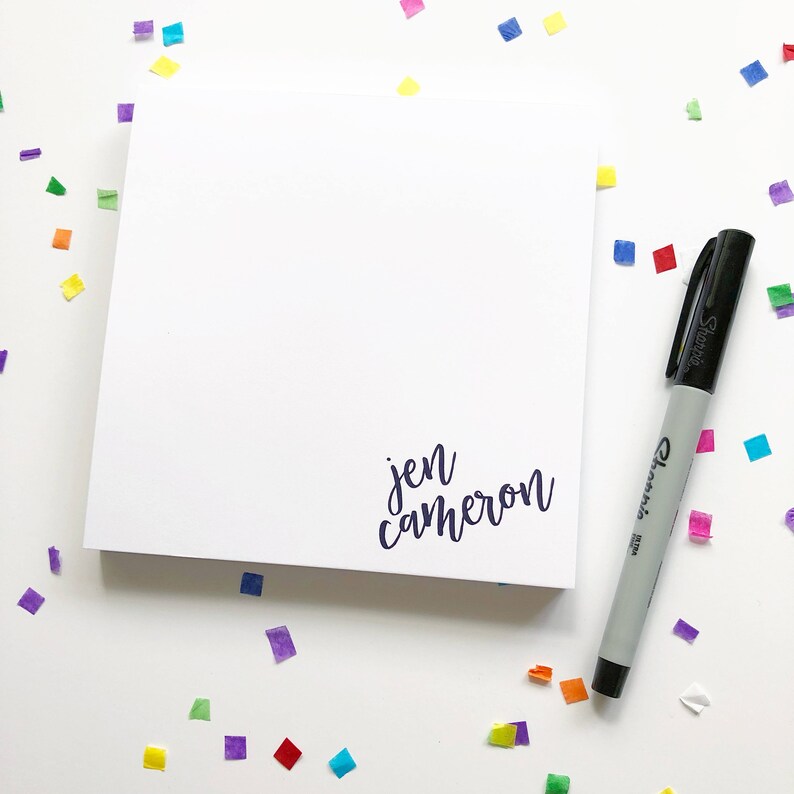 jen
cameron
Sharpie
Sharpie
ULTRA